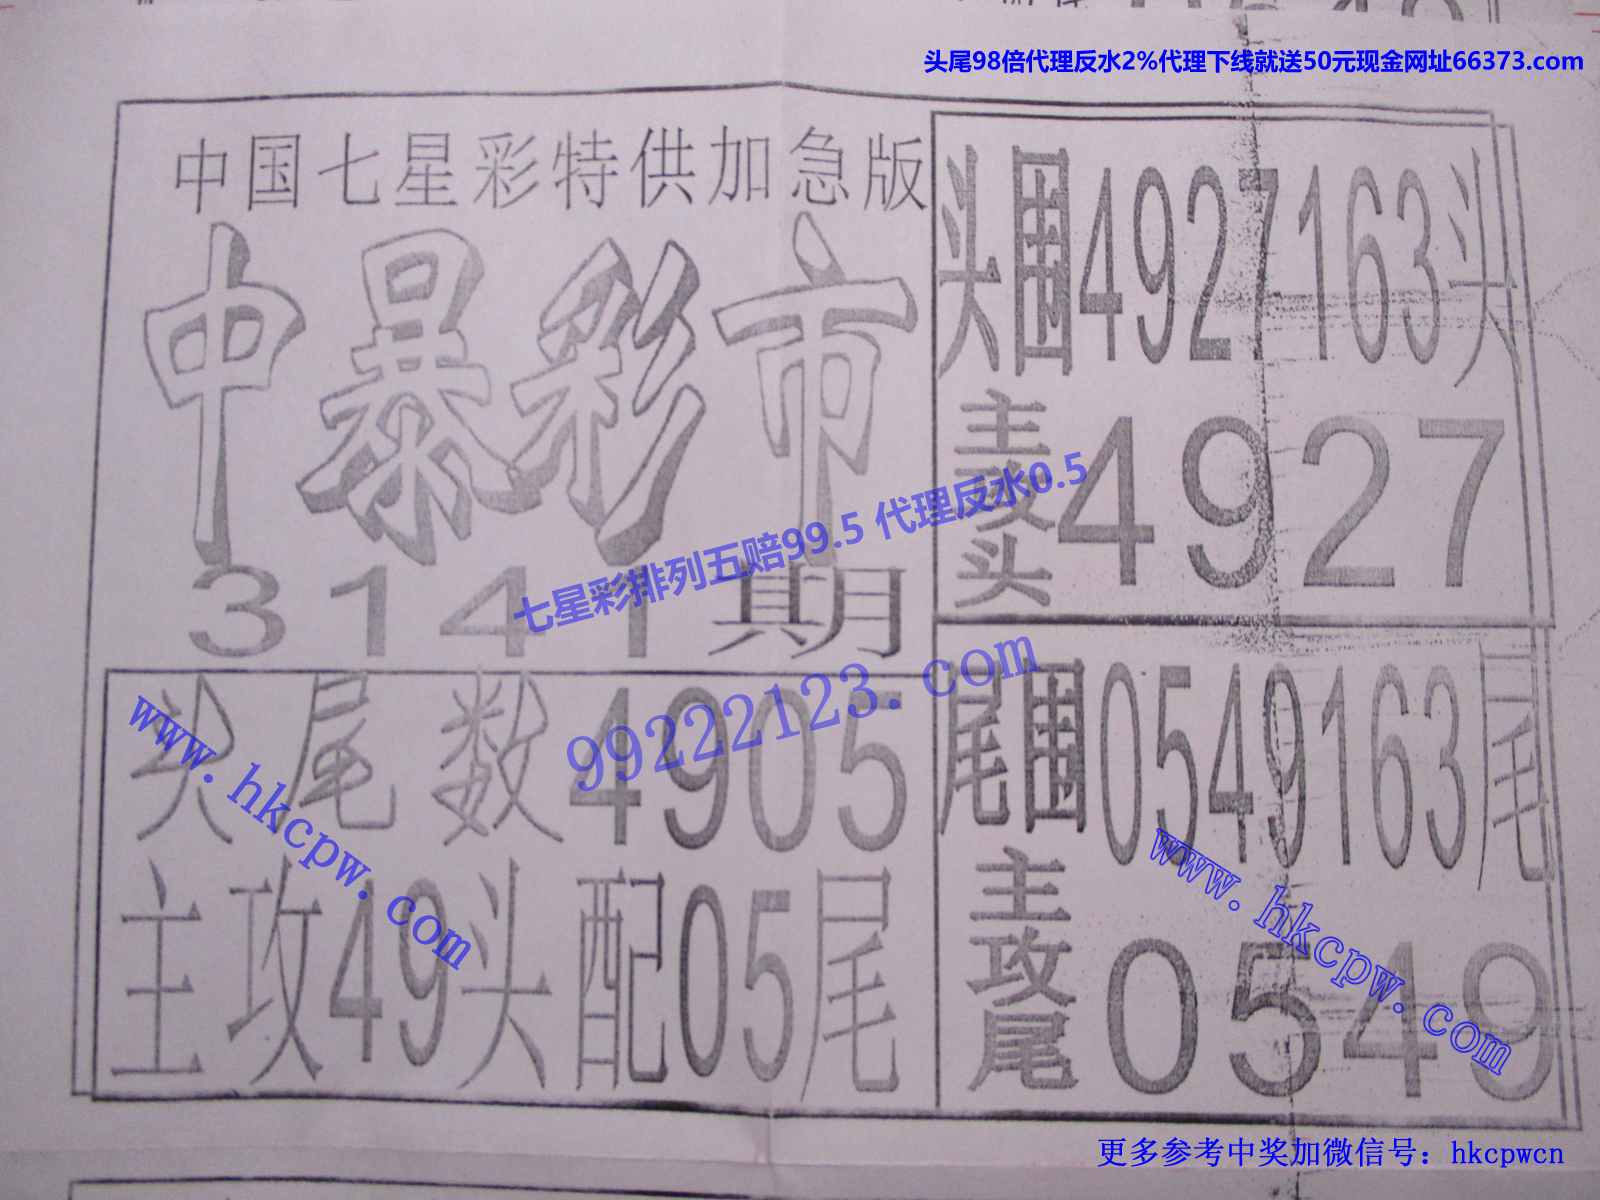 头尾98倍代理反水2%代理下线就送50元现金网址66373.com
中国七星彩特供加急版
中暴彩市
3141期
头围4927163头
主攻头4927
七星彩排列五赔99.5 代理反水0.5
99222123.com
头尾数4905
主攻49头配05尾
www.hkcpw.com
尾围0549163尾
主攻尾0549
www.hkcpw.com
更多参考中奖加微信号：hkcpwcn